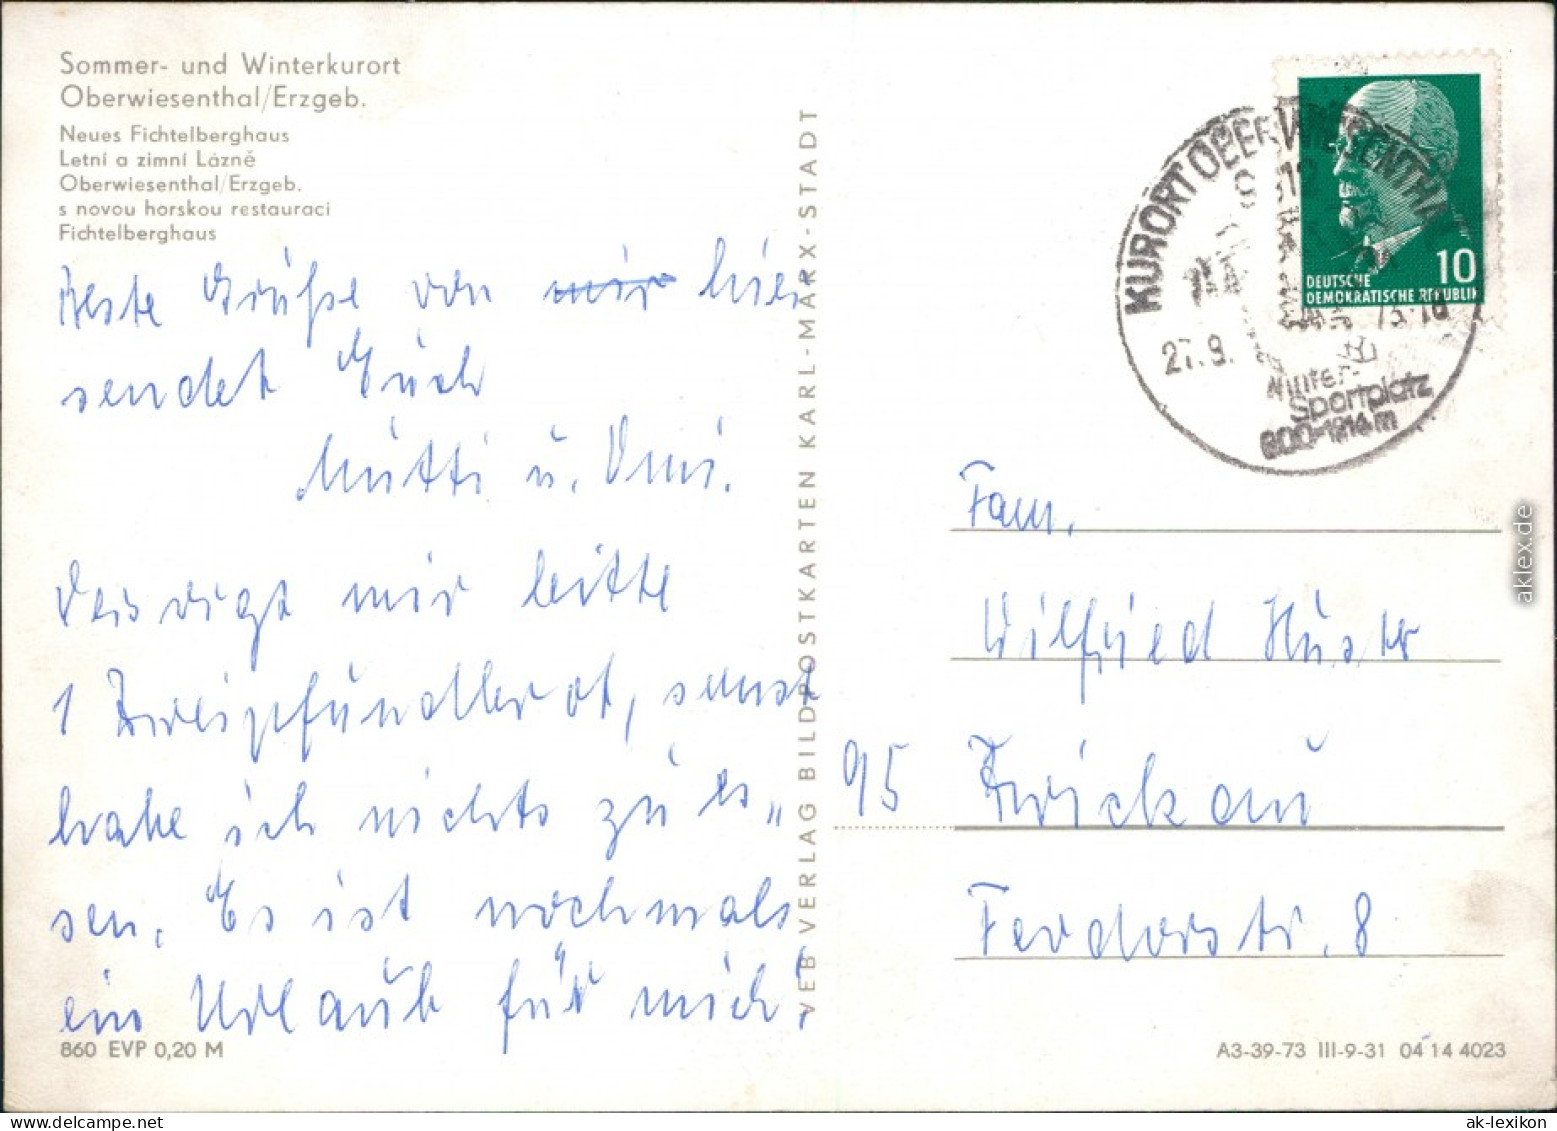 Sommer- und Winterkurort
Oberwiesenthal/Erzgeb.
Neues Fichtelberghaus
Letní a zimní Lázně
Oberwiesenthal/Erzgeb.
s novou horskou restauraci
Fichtelberghaus
Beste Grüße von mir hier
sendet Euch
Mutti u. Omi.
Besorgt mir bitte
1 Zweipfundbrot, sonst
habe ich nichts zu es„
sen. Es ist nochmals
ein Urlaub für mich!
860 EVP 0,20 M
VEB VERLAG BILDPOSTKARTEN KARL-MARX-STADT
KURORT OBERWIESENTHAL
27.9.
Winter-
Sportplatz
900-1214m
10
DEUTSCHE
DEMOKRATISCHE REPUBLIK
Fam.
Wilfried Huster
95 Zwickau
Feodorstr. 8
A3-39-73 III-9-31 04 14 4023
aklex.de
ak-lexikon